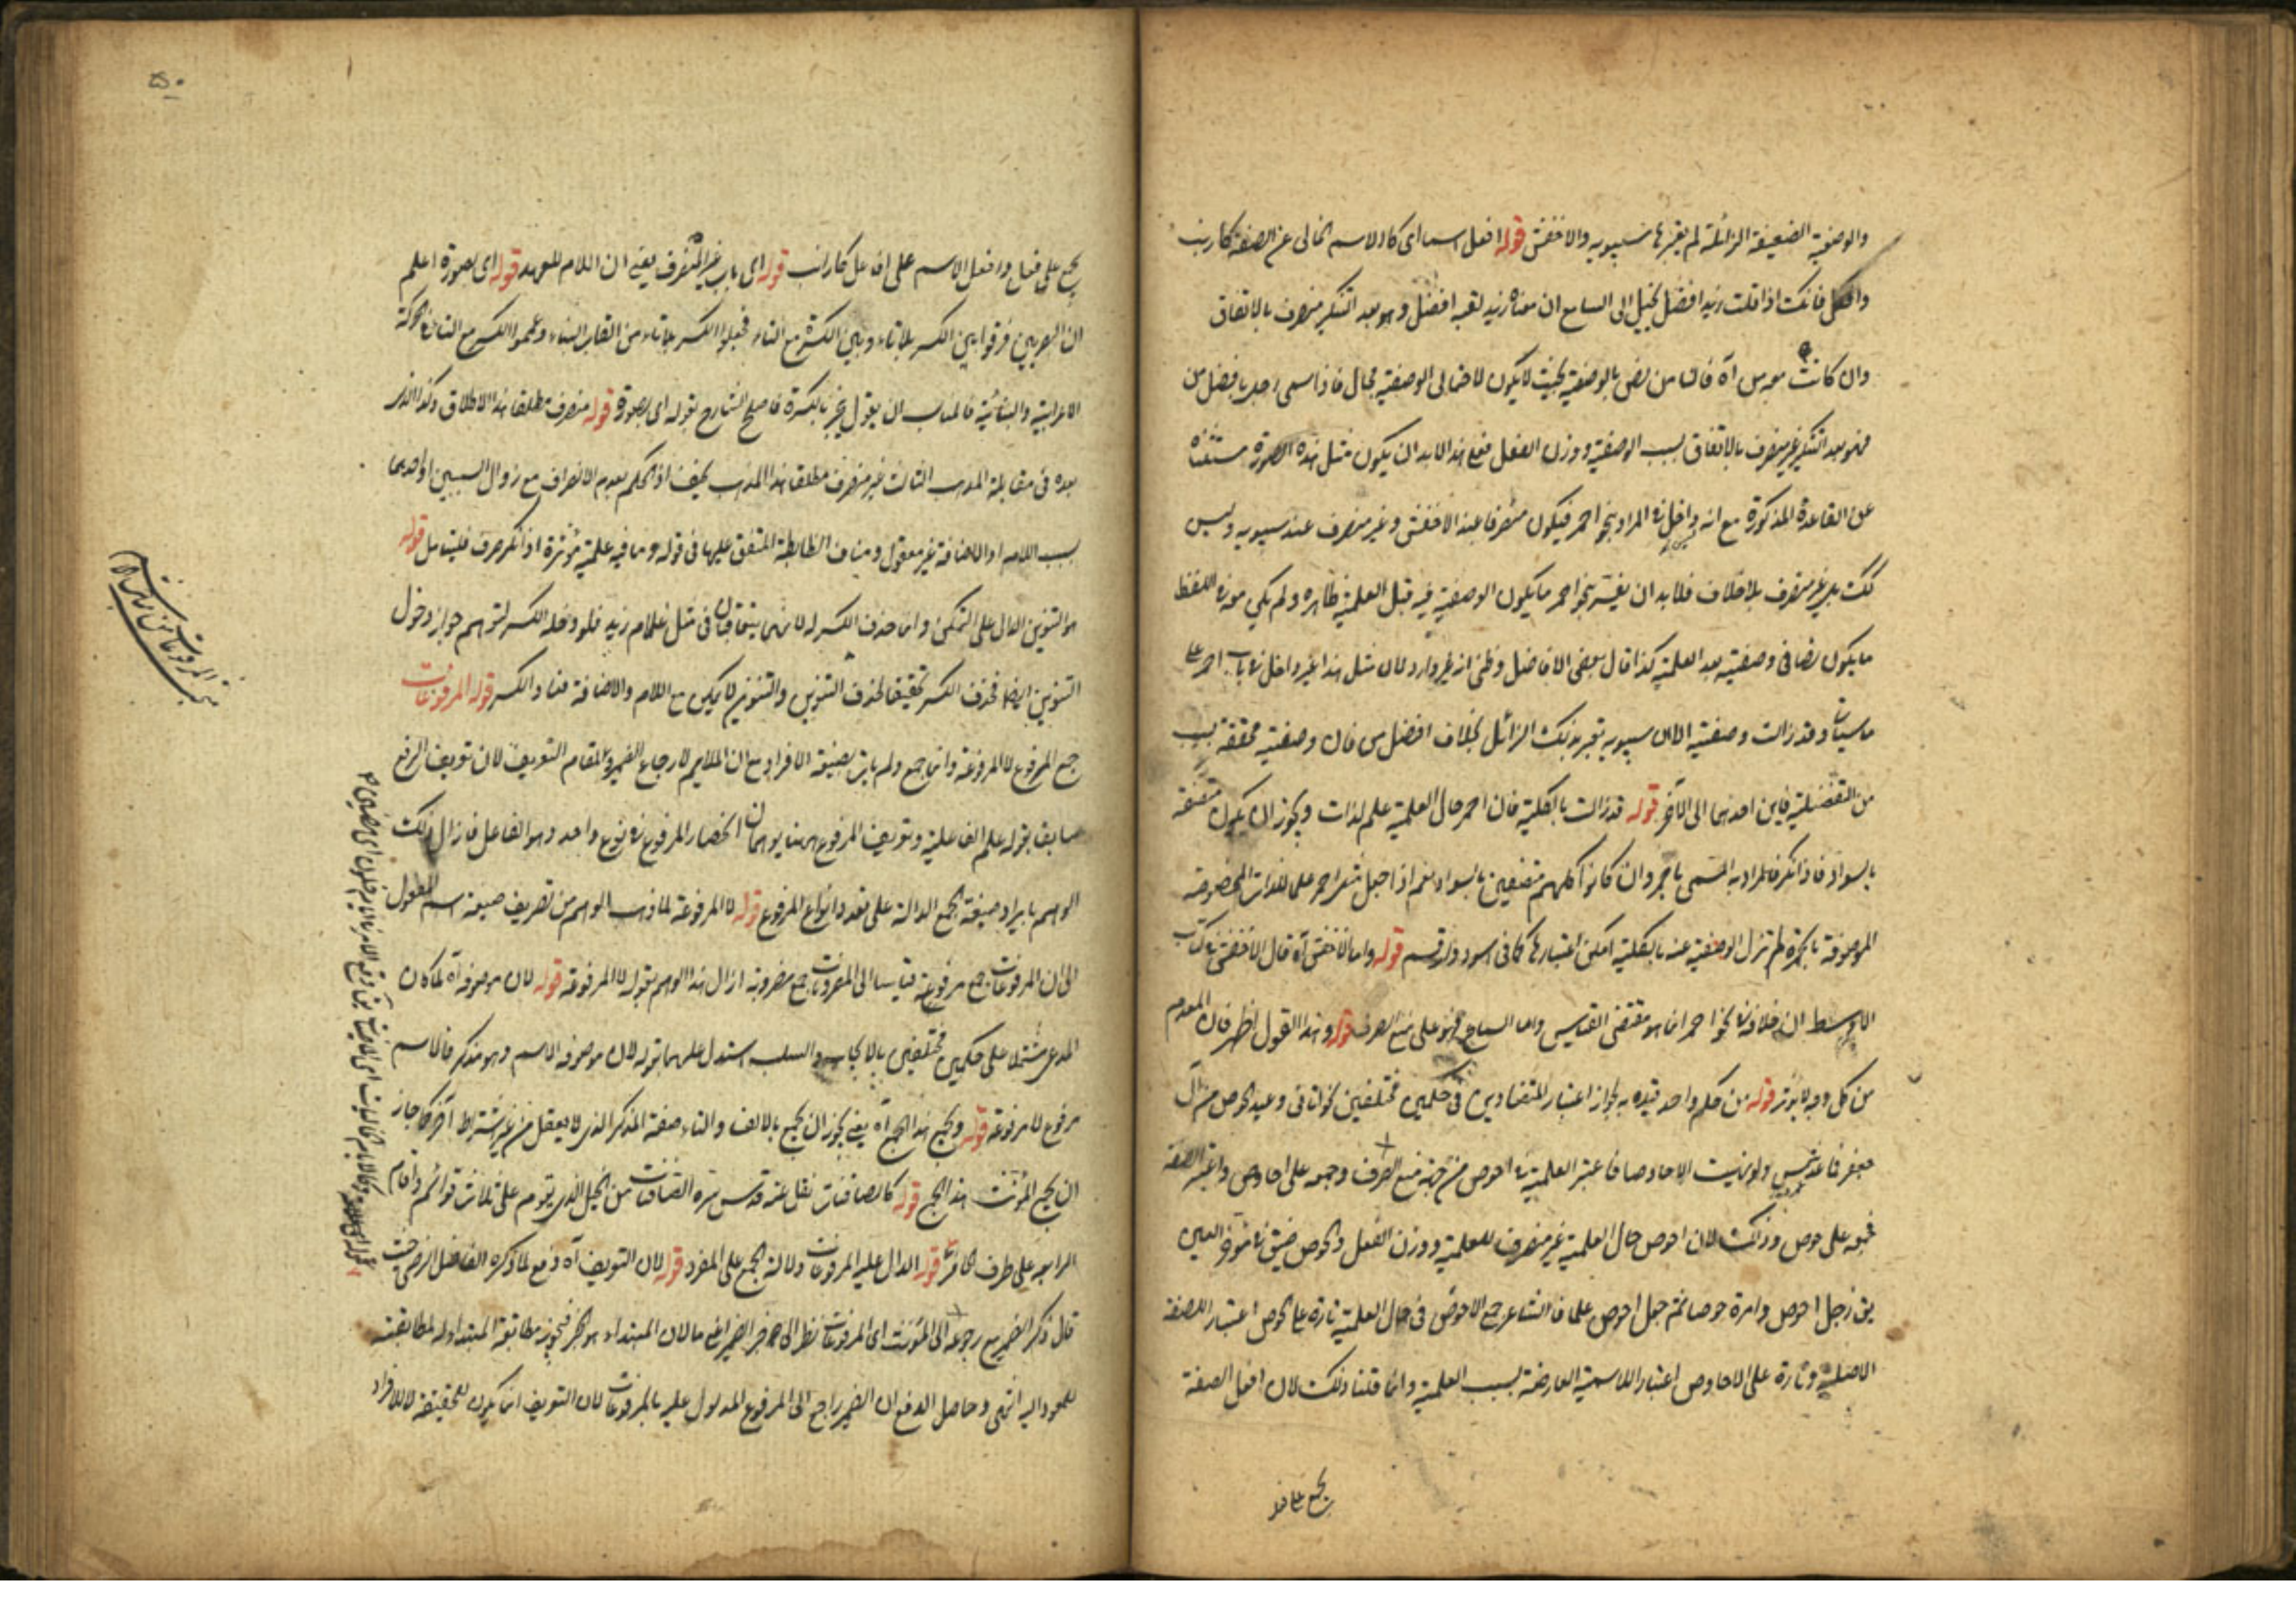 والوصفية الضعيفة الزائلة لم يعتبرها سيبويه والاخفش قوله افعل اسما اى كالاسم الخالى عن الصفة كارنب
وافكل فانك اذا قلت زيد افضل يخيل الى السامع ان معناه زيد لقبه افضل وهو بعد التنكير منصرف بالاتفاق
وان كانت معه من آه فالتا من نص بالوصفية بحيث لا يكون لاحتمالى الوصفية مجال فاذا سمى احد بافضل من
فهو بعد التنكير غير منصرف بالاتفاق لسبب الوصفية ووزن الفعل فعلى هذا لابد ان يكون مثل هذه الصورة مستثناة
عن القاعدة المذكورة مع انه داخل فى المراد بنحو احمر فيكون منصرفا عند الاخفش وغير منصرف عند سيبويه وليس
كك بل غير منصرف بلا خلاف فلابد ان يفسر نحو احمر ما يكون الوصفية فيه قبل العلمية ظاهرة ولم يكن معه اللفظ
ما يكون نصا فى وصفيته بعد العلمية كذا قال بعض الافاضل وظنى انه غير وارد لان مثل هذا غير داخل فى باب احمر على
ما سيأتى وقد زالت وصفيته الا ان سيبويه يعتبر ذلك الزائل بخلاف افضل من فان وصفيته محققة بسبب
من التفضيلية فاين احدهما الى الآخر قوله قد زالت بالكلية فان احمر حال العلمية علم لذات ويجوز ان يكون متصفة
بالسواد فاذا نكر فالمراد به المسمى باحمر وان كانوا كلهم متصفين بالسواد نعم اذا جعل مثل احمر علما للذات المخصوصة
الموصوفة بالحمرة لم تزل الوصفية عنه بالكلية امكن اعتبارها كما فى اسود وارقم قوله واما الاخفش آه قال الاخفش فى كتاب
الاوسط ان خلافه فى نحو احمر انما هو مقتضى القياس واما السماع فهو على منع الصرف قوله وهذا القول اظهر فان المعدوم
من كل وجه لا يؤثر قوله من حكم واحد قيده به لجواز اعتبار المتضادين فى حكمين مختلفين نحو اتانى وعيد الحوص من آل
جعفر فيا عبد عمرو لو نهيت الاحاوصا فاعتبر العلمية فى احوص من جهة منع الصرف وجمعه على احاوص واعتبر الصفة
فجمعه على حوص وذلك لان احوص حال العلمية غير منصرف للعلمية ووزن الفعل والحوص ضيق فى مؤخر العين
يق رجل احوص وامرة حوصا ثم جعل احوص علما فالشاعر جمع الاحوص فى حال العلمية تارة على الحوص اعتبارا للصفة
الاصلية وتارة على الاحاوص اعتبار اللاسمية العارضة لسبب العلمية وانما قلنا ذلك لان افعل الصفة
يجمع على فعل
٥٠
يجمع على فعل وافعل الاسم على افاعل كارانب قوله اى باب غير المنصرف يعنى ان اللام للعهد قوله اى بصورة اعلم
ان البصريين فرقوا بين الكسر بلا تاء وبين الكسرة مع التاء فجعلوا الكسر بلا تاء من القاب البناء وعمموا الكسر مع التاء فى الحركة
الاعرابية والبنائية فالمناسب ان يقول ينجر بالكسرة فاصلح الشارح بقوله اى بصورة قوله منصرف مطلقا هذا الاطلاق وكذا الذى
بعده فى مقابلة المذهب الثالث غير منصرف مطلقا هذا المذهب ضعيف اذ الحكم بعدم الانصراف مع زوال السببين او احدهما
بسبب اللام او الاضافة غير معقول ومناف الضابطة المتفق عليها فى قوله وما فيه علمية مؤثرة اذا نكر صرف فليتأمل قوله
هو التنوين الدال على التمكن وانما حذف الكسر لانهما يتعاقبان فى مثل غلام زيد فلو دخله الكسر لتوهم جواز دخول
التنوين ايضا فحذف الكسر تحقيقا لحذف التنوين والتنوين لا يكون مع اللام والاضافة فعاد الكسر قوله المرفوعات
جمع المرفوع لا المرفوعة وانما جمع ولم يأت بصيغة الافراد مع ان الملايم لارجاع الضمير والمقام التعريف لان تعريف الرفع
سابقا بقوله علم الفاعلية وتعريف المرفوع ههنا يوهمان انحصار المرفوع فى نوع واحد وهو الفاعل فازال ذلك
الوهم بايراد صيغة الجمع الدالة على تعدد انواع المرفوع قوله لا المرفوعة لما ذهب الوهم من تعريف صيغة اسم المفعول
الى ان المرفوعات جمع مرفوعة قياسا الى المضروبات جمع مضروبة ازال هذا الوهم بقوله لا المرفوعة قوله لان موصوفه آه لما كان
المدعى مشتملا على حكمين مختلفين بالايجاب والسلب استدل عليهما بقوله لان موصوفه الاسم وهو مذكر فالاسم
مرفوع لا مرفوعة قوله ويجمع هذا الجمع آه يعنى يجوز ان يجمع بالالف والتاء صفة المذكر الذى لا يعقل من غير اشتراط آخر كما جاز
ان يجمع المؤنث هذا الجمع قوله كالصافنات نقل عنه قدس سره الصافنات من الخيل الذى يقوم على ثلاث قوائم واقام
الرابعة على طرف الحافر قوله الدال عليه المرفوعات دلالة الجمع على المفرد قوله لان التعريف آه دفع لما ذكره الفاضل الرضى حيث
قال ذكر الضمير مع رجوعه الى المؤنث اى المرفوعات نظرا الى خبر الضمير اعنى ما لان المبتداء هو الخبر فيجوز مطابقة المبتدا له لمطابقته
للعود اليه انتهى وحاصل الدفع ان الضمير راجع الى المرفوع المدلول عليه بالمرفوعات لان التعريف انما يكون للحقيقة لا للافراد